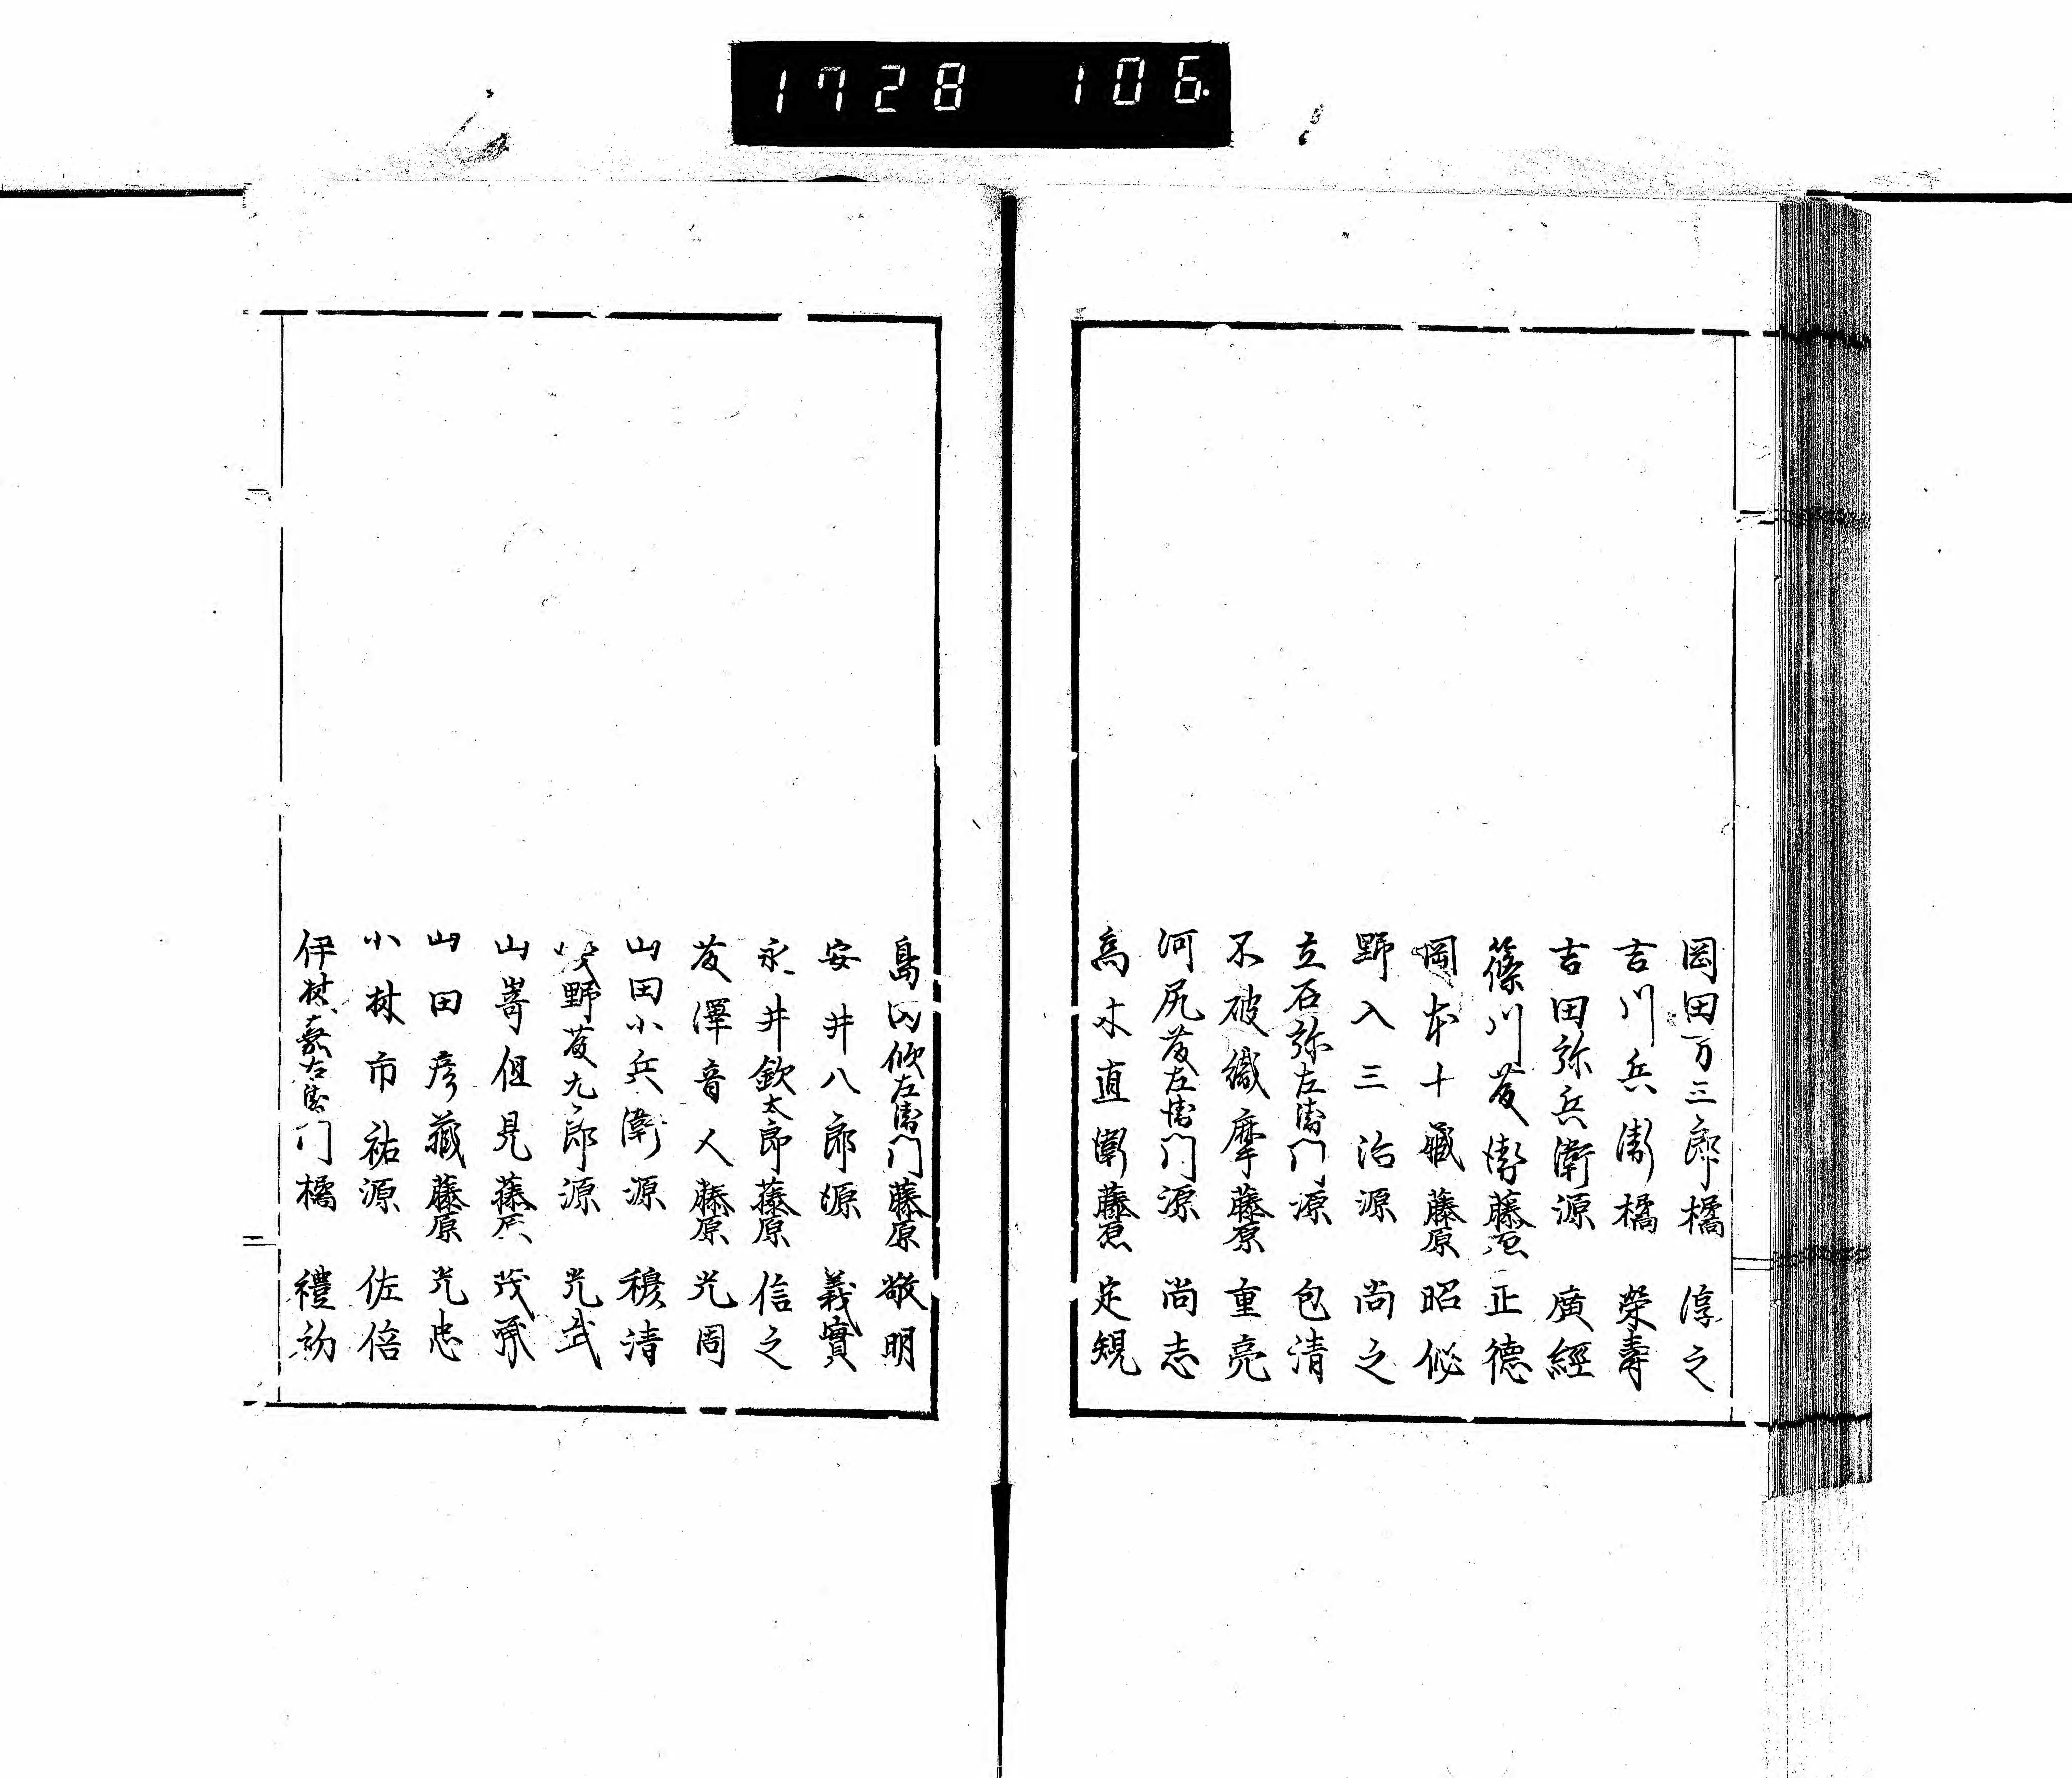 1728 106.
岡田万三郎橘 淳之
吉川兵衛橘 榮壽
吉田弥兵衛源 廣經
篠川友衛藤原 正德
岡本十藏藤原 昭
野入三治源 尚之
立石弥左衛门源 包清
不破織摩藤原 重亮
河尻友左衛门源 尚志
髙木直衛藤原 定規
島田 左衛门藤原 敬明
安井八郎源 義實
永井欽太郎藤原 信之
友澤音人藤原 光周
山田小兵衛源 穆清
野友九郎源 光武
山嵜但見藤原 茂承
山田彦藏藤原 光忠
小林市祐源 佐倍
伊林嘉右衛门橘 禮